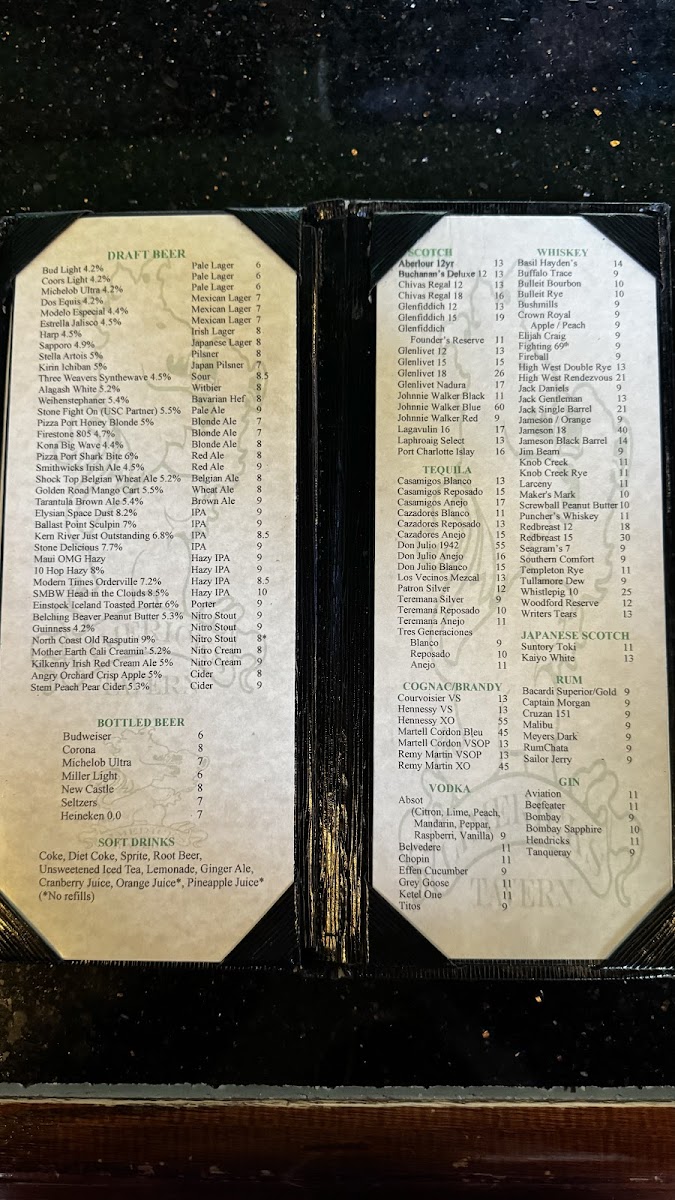 DRAFT BEER
Bud Light 4.2% Pale Lager 6
Coors Light 4.2% Pale Lager 6
Michelob Ultra 4.2% Pale Lager 6
Dos Equis 4.2% Mexican Lager 7
Modelo Especial 4.4% Mexican Lager 7
Estrella Jalisco 4.5% Mexican Lager 7
Harp 4.5% Irish Lager 8
Sapporo 4.9% Japanese Lager 8
Stella Artois 5% Pilsner 8
Kirin Ichiban 5% Japan Pilsner 7
Three Weavers Synthewave 4.5% Sour 8.5
Alagash White 5.2% Witbier 8
Weihenstephaner 5.4% Bavarian Hef 8
Stone Fight On (USC Partner) 5.5% Pale Ale 9
Pizza Port Honey Blonde 5% Blonde Ale 7
Firestone 805 4.7% Blonde Ale 7
Kona Big Wave 4.4% Blonde Ale 8
Pizza Port Shark Bite 6% Red Ale 8
Smithwicks Irish Ale 4.5% Red Ale 9
Shock Top Belgian Wheat Ale 5.2% Belgian Ale 8
Golden Road Mango Cart 5.5% Wheat Ale 8
Tarantula Brown Ale 5.4% Brown Ale 9
Elysian Space Dust 8.2% IPA 9
Ballast Point Sculpin 7% IPA 9
Kern River Just Outstanding 6.8% IPA 8.5
Stone Delicious 7.7% IPA 9
Maui OMG Hazy Hazy IPA 9
10 Hop Hazy 8% Hazy IPA 9
Modern Times Orderville 7.2% Hazy IPA 8.5
SMBW Head in the Clouds 8.5% Hazy IPA 10
Einstock Iceland Toasted Porter 6% Porter 9
Belching Beaver Peanut Butter 5.3% Nitro Stout 9
Guinness 4.2% Nitro Stout 9
North Coast Old Rasputin 9% Nitro Stout 8*
Mother Earth Cali Creamin' 5.2% Nitro Cream 8
Kilkenny Irish Red Cream Ale 5% Nitro Cream 9
Angry Orchard Crisp Apple 5% Cider 8
Stem Peach Pear Cider 5.3% Cider 9
BOTTLED BEER
Budweiser 6
Corona 8
Michelob Ultra 7
Miller Light 6
New Castle 8
Seltzers 7
Heineken 0.0 7
SOFT DRINKS
Coke, Diet Coke, Sprite, Root Beer,
Unsweetened Iced Tea, Lemonade, Ginger Ale,
Cranberry Juice, Orange Juice*, Pineapple Juice*
(*No refills)
SCOTCH
Aberlour 12yr 13
Buchanan's Deluxe 12 13
Chivas Regal 12 13
Chivas Regal 18 16
Glenfiddich 12 13
Glenfiddich 15 19
Glenfiddich
Founder's Reserve 11
Glenlivet 12 13
Glenlivet 15 15
Glenlivet 18 26
Glenlivet Nadura 17
Johnnie Walker Black 11
Johnnie Walker Blue 60
Johnnie Walker Red 9
Lagavulin 16 17
Laphroaig Select 13
Port Charlotte Islay 16
TEQUILA
Casamigos Blanco 13
Casamigos Reposado 15
Casamigos Anejo 17
Cazadores Blanco 11
Cazadores Reposado 13
Cazadores Anejo 15
Don Julio 1942 55
Don Julio Anejo 16
Don Julio Blanco 15
Los Vecinos Mezcal 13
Patron Silver 12
Teremana Silver 9
Teremana Reposado 10
Teremana Anejo 11
Tres Generaciones
Blanco 9
Reposado 10
Anejo 11
COGNAC/BRANDY
Courvoisier VS 13
Hennessy VS 13
Hennessy XO 55
Martell Cordon Bleu 45
Martell Cordon VSOP 13
Remy Martin VSOP 13
Remy Martin XO 45
VODKA
Absot
(Citron, Lime, Peach,
Mandarin, Peppar,
Raspberri, Vanilla) 9
Belvedere 11
Chopin 11
Effen Cucumber 9
Grey Goose 11
Ketel One 11
Titos 9
WHISKEY
Basil Hayden's 14
Buffalo Trace 9
Bulleit Bourbon 10
Bulleit Rye 10
Bushmills 9
Crown Royal 9
Apple / Peach 9
Elijah Craig 9
Fighting 69th 9
Fireball 9
High West Double Rye 13
High West Rendezvous 21
Jack Daniels 9
Jack Gentleman 13
Jack Single Barrel 21
Jameson / Orange 9
Jameson 18 40
Jameson Black Barrel 14
Jim Beam 9
Knob Creek 11
Knob Creek Rye 11
Larceny 11
Maker's Mark 10
Screwball Peanut Butter 10
Puncher's Whiskey 11
Redbreast 12 18
Redbreast 15 30
Seagram's 7 9
Southern Comfort 9
Templeton Rye 11
Tullamore Dew 9
Whistlepig 10 25
Woodford Reserve 12
Writers Tears 13
JAPANESE SCOTCH
Suntory Toki 11
Kaiyo White 13
RUM
Bacardi Superior/Gold 9
Captain Morgan 9
Cruzan 151 9
Malibu 9
Meyers Dark 9
RumChata 9
Sailor Jerry 9
GIN
Aviation 11
Beefeater 11
Bombay 9
Bombay Sapphire 10
Hendricks 11
Tanqueray 9
TAVERN